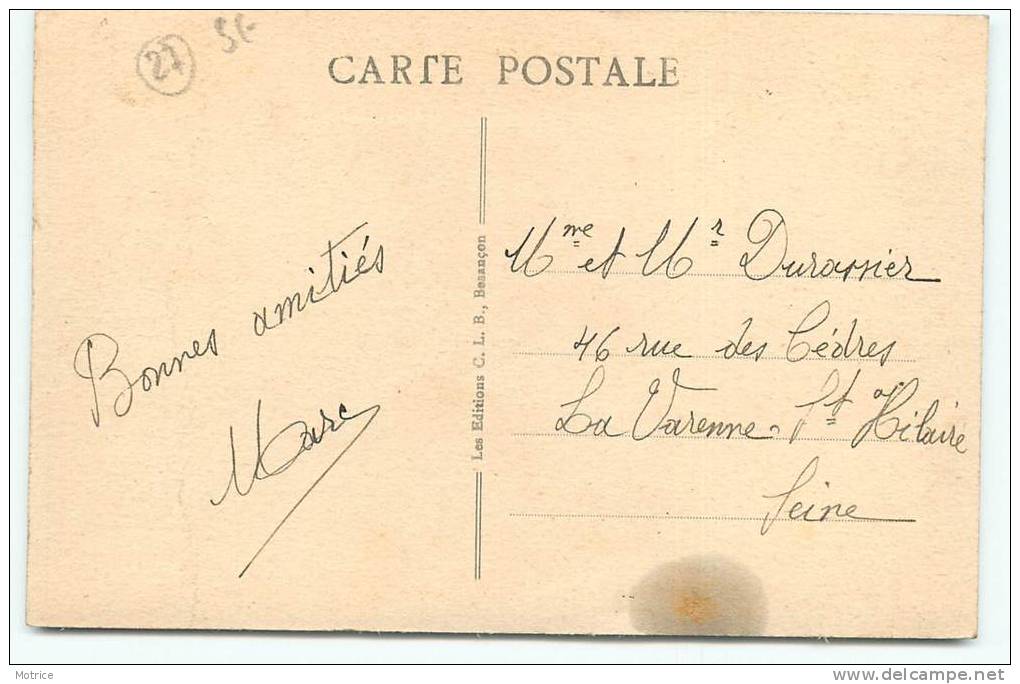 27
5f
CARTE POSTALE
Bonnes amitiés
Marc
Les Editions C. L. B., Besançon
Mme et Mr Durassier
46 rue des Cèdres
La Varenne-St Hilaire
Seine
Motrice
www.delcampe.net